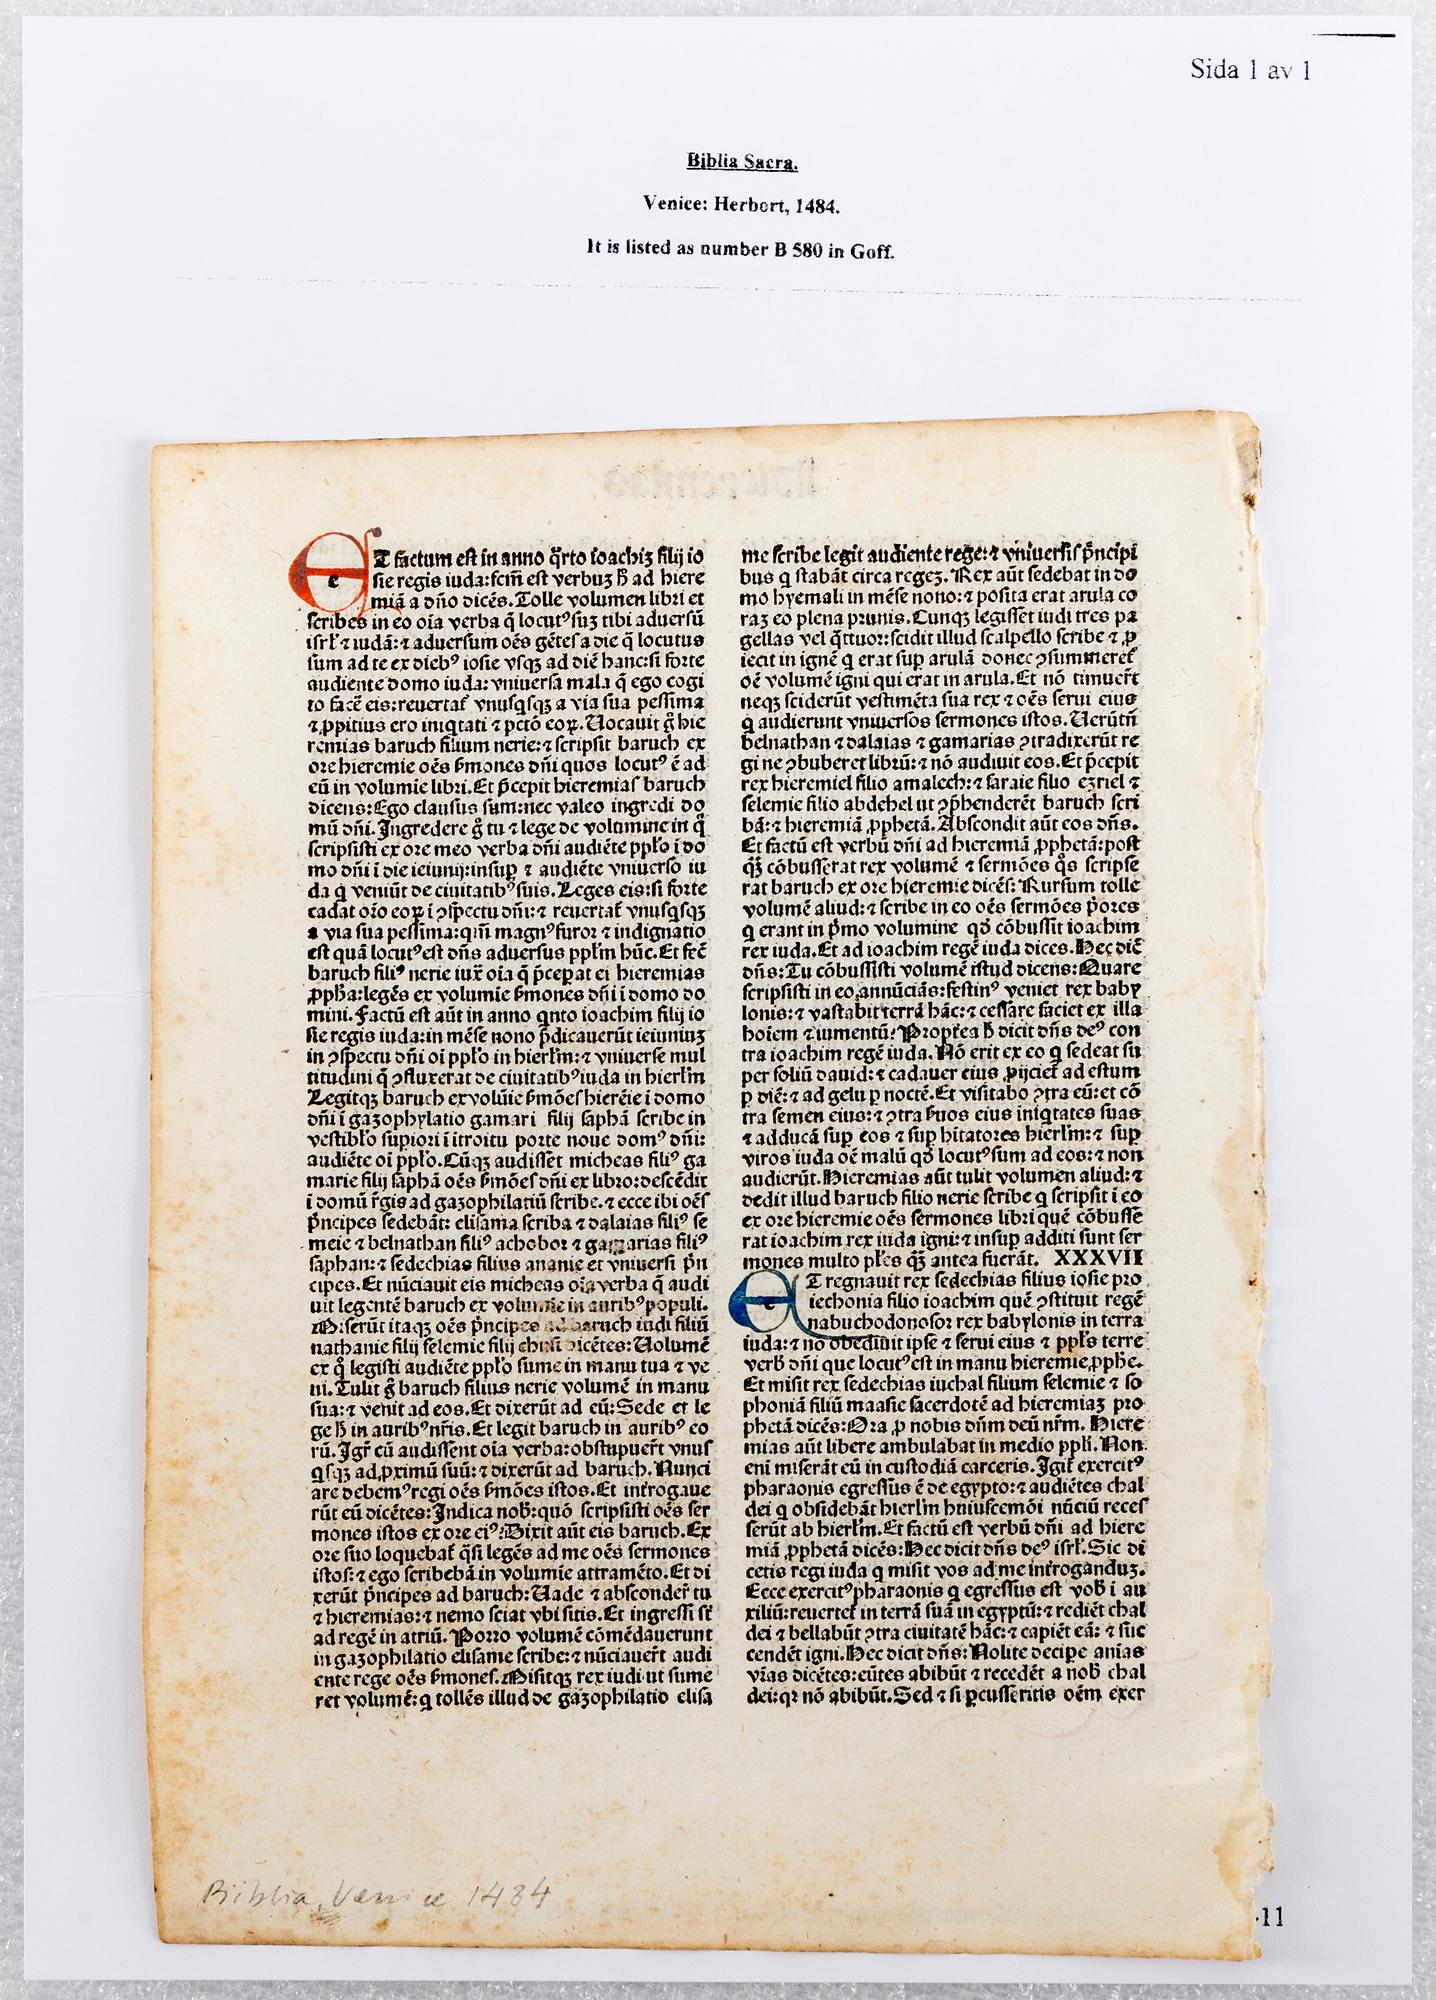 Sida 1 av 1
Biblia Sacra.
Venice: Herbort, 1484.
It is listed as number B 580 in Goff.
ET factum est in anno q̄rto ioachiȝ filij io
sie regis iuda:fcm̄ est verbuȝ ħ ad hiere
miā a dn̄o dicēs.Tolle volumen libri et
scribes in eo oīa verba q̄ locutꝰsuȝ tibi aduersū
isrł ⁊ iudā:⁊ aduersum oēs gētes a die q̄ locutus
sum ad te ex diebꝰ iosie vsqȝ ad diē hanc:si forte
audiente domo iuda: vniuersa mala q̄ ego cogi
to facē eis:reuertat̄ vnusqsqȝ a via sua pessima
⁊ ꝓpitius ero iniqtati ⁊ pctō eoꝝ.Uocauit g̊ hie
remias baruch filium nerie:⁊ scripsit baruch ex
ore hieremie oēs ẜmones dn̄i quos locutꝰ ē ad
eū in volumie libri.Et p̄cepit hieremias baruch
dicens:Ego clausus sum:nec valeo ingredi do
mū dn̄i.Ingredere g̊ tu ⁊ lege de volumine in q̄
scripsisti ex ore meo verba dn̄i audiēte ppło ī do
mo dn̄i ī die ieiunij:insuꝑ ⁊ audiēte vniuerso iu
da q̨ veniūt de ciuitatibꝰsuis.Leges eis:si forte
cadat orō eoꝝ ī ꝯspectu dn̄i:⁊ reuertat̄ vnusqsqȝ
a via sua pessima:qm̄ magnꝰfuror ⁊ indignatio
est quā locutꝰest dn̄s aduersus ppłm hūc.Et fec̄
baruch filiꝰ nerie iux̄ oīa q̄ p̄cepat ei hieremias
ꝓpha:legēs ex volumie ẜmones dn̄i ī domo do
mini.Factū est aūt in anno qnto ioachim filij io
sie regis iuda:in mēse nono p̄dicauerūt ieiuniuȝ
in ꝯspectu dn̄i oī ppło in hierłm:⁊ vniuerse mul
titudini q̄ ꝯfluxerat de ciuitatibꝰiuda in hierłm
Legitqȝ baruch ex volūie ẜmōes hierēie ī domo
dn̄i ī gazophylatio gamari filij saphā scribe in
vestibło supiori ī itroitu porte noue domꝰ dn̄i:
audiēte oī ppło.Cūqȝ audisset micheas filiꝰ ga
marie filij saphā oēs ẜmōes dn̄i ex libro:descēdit
ī domū r̄gis ad gazophilatiū scribe.⁊ ecce ibi oēs
p̄ncipes sedebāt: elisama scriba ⁊ dalaias filiꝰ se
meie ⁊ belnathan filiꝰ achobor ⁊ gamarias filiꝰ
saphan:⁊ sedechias filius ananie et vniuersi p̄n
cipes.Et nūciauit eis micheas oīa verba q̄ audi
uit legentē baruch ex volumie in auribꝰpopuli.
Miserūt itaqȝ oēs p̄ncipes ad baruch iudi filiū
nathanie filij selemie filij chusi dicētes:Uolumē
ex q̄ legisti audiēte ppło sume in manu tua ⁊ ve
ni.Tulit g̊ baruch filius nerie volumē in manu
sua:⁊ venit ad eos.Et dixerūt ad eū:Sede et le
ge ħ in auribꝰnr̄is.Et legit baruch in auribꝰ eo
rū.Igr̄ cū audissent oīa verba:obstupuer̄t vnus
qsqȝ ad ꝓximū suū:⁊ dixerūt ad baruch.Nunci
are debemꝰregi oēs ẜmōes istos.Et introgaue
rūt eū dicētes:Indica nob̄:quō scripsisti oēs ser
mones istos ex ore eiꝰ?Dixit aūt eis baruch.Ex
ore suo loquebat̄ q̄si legēs ad me oēs sermones
istos:⁊ ego scribebā in volumie attramēto.Et di
xerūt p̄ncipes ad baruch:Uade ⁊ absconder̄ tu
⁊ hieremias:⁊ nemo sciat vbi sitis.Et ingressi st̄
ad regē in atriū.Porro volumē cōmēdauerunt
in gazophilatio elisame scribe:⁊ nūciauer̄t audi
ente rege oēs ẜmones.Misitqȝ rex iudi ut sume
ret volumē:q̨ tollēs illud de gazophilatio elisa
me scribe legit audiente rege:⁊ vniuersis p̄ncipi
bus q̨ stabāt circa regeȝ.Rex aūt sedebat in do
mo hyemali in mēse nono:⁊ posita erat arula co
raȝ eo plena prunis.Cunqȝ legisset iudi tres pa
gellas vel q̄ttuor:scidit illud scalpello scribe ⁊ ꝓ
iecit in ignē q̨ erat suꝑ arulā donec ꝯsummeret̄
oē volumē igni qui erat in arula.Et nō timuer̄t
neqȝ sciderūt vestimēta sua rex ⁊ oēs serui eius
q̨ audierunt vniuersos sermones istos.Uerūtn̄
belnathan ⁊ dalaias ⁊ gamarias ꝯtradixerūt re
gi ne ꝯburet librū:⁊ nō audiuit eos.Et p̄cepit
rex hieremiel filio amalech:⁊ saraie filio ezriel ⁊
selemie filio abdehel ut ꝯp̄henderēt baruch scri
bā:⁊ hieremiā ꝓphetā.Abscondit aūt eos dn̄s.
Et factū est verbū dn̄i ad hieremiā ꝓphetā:post
q̄ȝ cōbusserat rex volumē ⁊ sermōes q̄s scripse
rat baruch ex ore hieremie dicēs:Rursum tolle
volumē aliud:⁊ scribe in eo oēs sermōes p̄ores
q̨ erant in p̄mo volumine qd̄ cōbussit ioachim
rex iuda.Et ad ioachim regē iuda dices.Hec dic̄
dn̄s:Tu cōbussisti volumē istud dicens:Quare
scripsisti in eo annūciās:festinꝰ veniet rex baby
lonis:⁊ vastabit terrā hāc:⁊ cessare faciet ex illa
hoiem ⁊ iumentū?Propt̄ea ħ dicit dn̄s deꝰ con
tra ioachim regē iuda.Nō erit ex eo q̨ sedeat su
per soliū dauid:⁊ cadauer eius ꝓijciet̄ ad estum
ꝑ diē:⁊ ad gelu ꝑ noctē.Et visitabo ꝯtra eū:et cō
tra semen eius:⁊ ꝯtra ẜuos eius iniqtates suas
⁊ adducā suꝑ eos ⁊ suꝑ hītatores hierłm:⁊ suꝑ
viros iuda oē malū qd̄ locutꝰsum ad eos:⁊ non
audierūt.Hieremias aūt tulit volumen aliud:⁊
dedit illud baruch filio nerie scribe q̨ scripsit ī eo
ex ore hieremie oēs sermones libri quē cōbusse
rat ioachim rex iuda igni:⁊ insuꝑ additi sunt ser
mones multo płes q̄ȝ antea fuerāt. XXXVII
ET regnauit rex sedechias filius iosie pro
iechonia filio ioachim quē ꝯstituit regē
nabuchodonosor rex babylonis in terra
iuda:⁊ nō obediuit ipse ⁊ serui eius ⁊ ppłs terre
verb̄ dn̄i que locutꝰest in manu hieremie ꝓphe.
Et misit rex sedechias iuchal filium selemie ⁊ so
phoniā filiū maasie sacerdotē ad hieremiaȝ pro
phetā dicēs:Ora ꝓ nobis dn̄m deū nr̄m. Hiere
mias aūt libere ambulabat in medio ppłi.Non
eni miserāt eū in custodiā carceris.Igit̄ exercitꝰ
pharaonis egressus ē de egypto:⁊ audiētes chal
dei q̨ obsidebāt hierłm huiuscemōi nūciū reces
serūt ab hierłm.Et factū est verbū dn̄i ad hiere
miā ꝓphetā dicēs:Hec dicit dn̄s deꝰ isrł.Sic di
cetis regi iuda q̨ misit vos ad me introganduȝ.
Ecce exercitꝰpharaonis q̨ egressus est vob̄ ī au
xiliū:reuertet̄ in terrā suā in egyptū:⁊ rediēt chal
dei ⁊ bellabūt ꝯtra ciuitatē hāc:⁊ capiēt eā: ⁊ suc
cendēt igni.Hec dicit dn̄s:Nolite decipe anias
vr̄as dicētes:eūtes abibūt ⁊ recedēt a nob̄ chal
dei:qꝛ nō abibūt.Sed ⁊ si ꝑcusseritis oēm exer
Biblia, Venice 1484
-11